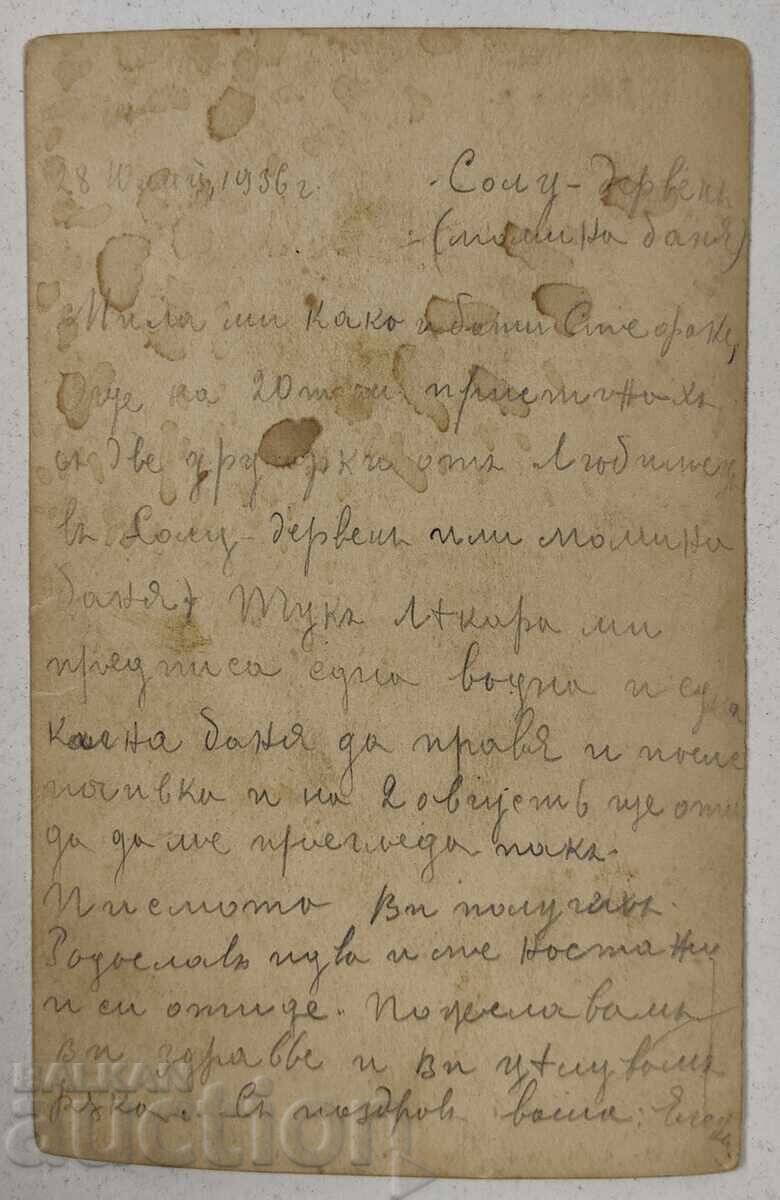 28 Юлий, 1936 г. Солу-дервентъ
(момина баня)
Мила ми како и бати
още на 20 т. м. пристигнахъ
съ две другарки отъ Любимецъ
въ Солу-дервентъ или момина
баня) Тукъ лѣкаря ми
предписа една водна и една
кална баня да правя и после
почивка и на 2 августъ ще оти
да да ме прегледа пакъ.
Писмото Ви получихъ.
Радославъ идва и ме настани
и си отиде. Пожелавамъ
Ви здраве и Ви цѣлувамъ
рѫка. Съ поздравъ ваша:
BALKAN
auction